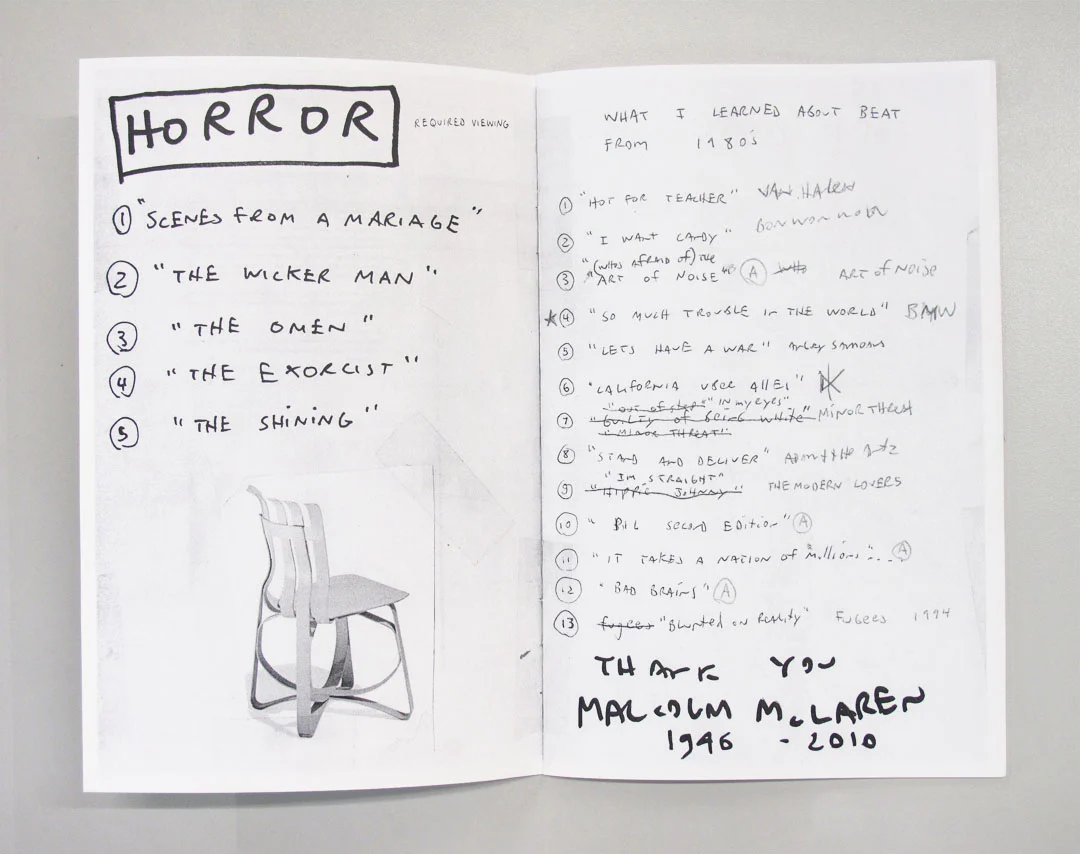 HORROR
REQUIRED VIEWING
① "SCENES FROM A MARIAGE"
② "THE WICKER MAN"
③ "THE OMEN"
④ "THE EXORCIST"
⑤ "THE SHINING"
WHAT I LEARNED ABOUT BEAT
FROM 1980's
① "HOT FOR TEACHER" VAN HALEN
② "I WANT CANDY" BOW WOW WOW
"(WHOS AFRAID OF) THE
③ "ART OF NOISE" A WHO ART OF NOISE
★④ "SO MUCH TROUBLE IN THE WORLD" BMW
⑤ "LETS HAVE A WAR"
⑥ "CALIFORNIA UBER ALLES" DK
"OUT OF STEP" "IN MY EYES"
⑦ "GUILTY OF BEING WHITE" MINOR THREAT
"MINOR THREAT"
⑧ "STAND AND DELIVER" ADAM & THE ANTZ
"IM STRAIGHT"
⑨ "HIPPIE JOHNNY" THE MODERN LOVERS
⑩ "PiL SECOND EDITION" A
⑪ "IT TAKES A NATION OF MILLIONS"... A
⑫ "BAD BRAINS" A
⑬ fugees "Blunted on Reality" FUGEES 1994
THANK YOU
MALCOLM McLAREN
1946 - 2010